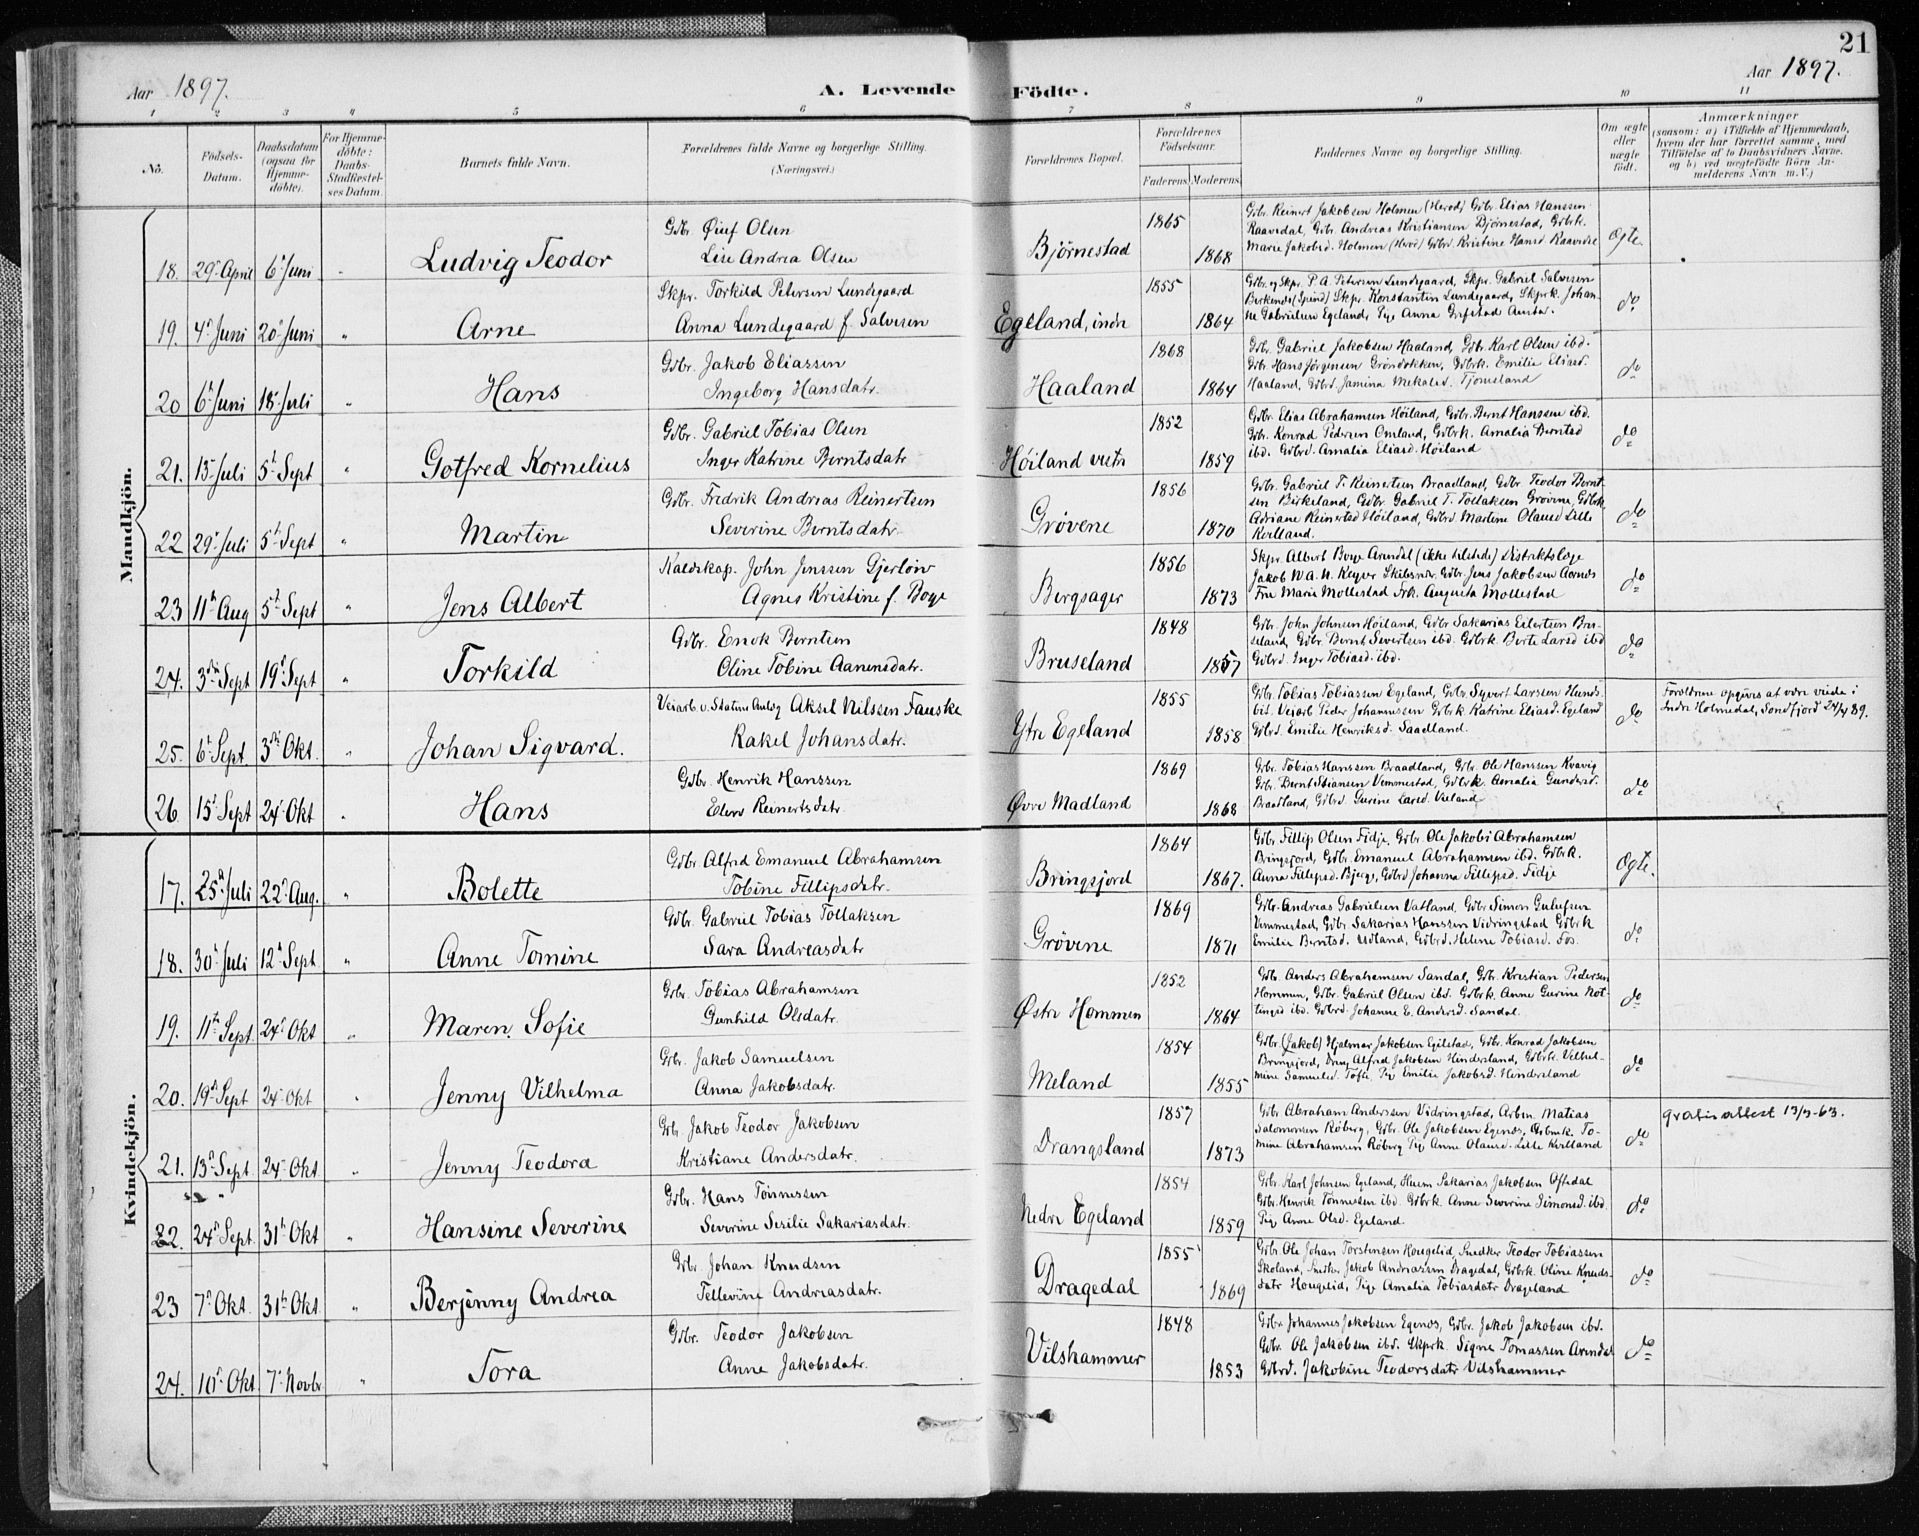 21
Aar 1897.
A. Levende Födte.
Aar 1897.
1 2 3 4 5 6 7 8 9 10 11
No.
Födsels-Datum.
Daabsdatum (ogsaa for Hjemme-döbte).
For Hjemme-döbte: Daabs-Stadfestel-ses Datum.
Barnets fulde Navn.
Forældrenes fulde Navne og borgerlige Stilling.
(Næringsvei.)
Forældrenes Bopæl.
Forældrenes Födselsaar.
Faderens. Moderens.
Faddernes Navne og borgerlige Stilling.
Om ægte eller uægte födt.
Anmærkninger
(saasom: a) i Tilfælde af Hjemmedaab, hvem der har forrettet samme, med Tilföielse af to Daabsvidners Navne. og b) ved uægtefödte Börn An-melderens Navn m. V.)
Mandkjön.
18. 29 April 6 Juni " Ludvig Teodor
Gdbr. Olsen
Lise Andrea Olsen
Bjørnestad 1865 1868
Gdbr. Reinert Jakobsen Holmen (Herod) Gdbr. Elias Hanssen
Raavedal, Gdbr. Andreas Kristiansen Bjørnestad, Gdbrk.
Marie Jakobsd. Holmen (Herod) Gdbrd. Kristine Hansd. Raavedal
Ægte.
19. 4 Juni 20 Juni " Arne
Skpr. Torkild Petersen Lundegaard
Anna Lundegaard f. Salvesen
Egeland, indr 1855 1864
Gdbr. og Skpr. P. A. Petersen Lundegaard, Skpr. Gabriel Salvesen
Birkenes (Spind) Skpr. Konstantin Lundegaard, Skprk. Johan-
ne Gabrielsen Egeland, Pige Anna
do
20 6 Juni 18 Juli " Hans
Gdbr. Jakob Eliassen
Ingeborg Hansdatr.
Haaland 1868 1864
Gdbr. Gabriel Jakobsen Haaland, Gdbr. Karl Olsen ibd.
Gdbr. Hans Jørgensen Grøndokken, Gdbrk. Emilie Eliasd.
Haaland, Gdbrd. Jamina Mekalsd. Tjomsland
do
21. 13 Juli 5 Sept " Gotfred Kornelius
Gdbr. Gabriel Tobias Olsen
Inger Katrine Berntsdatr
Høiland vestr 1852 1859
Gdbr. Elias Abrahamsen Høiland, Gdbr. Bernt Hanssen ibd.
Gdbr. Konrad Pedersen Omland, Gdbrk. Amalia Berntsd
ibd. Gdbrd. Amalia Eliasd. Høiland
do
22 29 Juli 5 Sept " Martin
Gdbr. Fredrik Andreas Reinertsen
Severine Berntsdatr.
Grøvene 1856 1870
Gdbr. Gabriel T. Reinertsen Braadland, Gdbr. Teodor Bernt-
sen Birkeland, Gdbr. Gabriel T. Tollaksen Grøvene, Gdbrk.
Adriane Reinertsd Høiland, Gdbrd Martine Olausd Lille
Kvilland.
do
23 11 Aug 5 Sept " Jens Albert
Kaldskap. John Jenssen Gjerløw
Agnes Kristine f. Boye
Bergsager 1856 1873
Skpr. Albert Boye Arendal (ikke tilstede) Distriktslæge
Jakob W. A. N. Keyser Gdbr. Jens Jakobsen Aarnes
Frue Marie Mollestad Frk. Augusta Mollestad
do
24. 3 Sept 19 Sept " Torkild
Gdbr. Enok Berntsen
Oline Tobine Aanensdatr.
Bruseland 1848 1857
Gdbr. John Johnsen Høiland, Gdbr Sakarias Eilertsen Bru-
seland, Gdbr. Bernt Severtsen ibd. Gdbrk Berte Larsd ibd
Gdbrd. Inger Tobiasd. ibd.
do
25. 6 Sept. 3 Okt. " Johan Sigvard.
Veiarb. v. Statens Anlæg Aksel Nilssen Fauske
Rakel Johansdatr.
Ytre Egeland 1855 1858
Gdbr. Tobias Tobiassen Egeland, Gdbr. Syvert Larssen Hunds-
bit. Veiarb Peder Johannessen Gdbrk Katrine Eliasd. Egeland
Gdbrd. Emilie Henriksd. Saadland.
do
Forældrene opgives at være viede i
Indre Holmedal, Søndfjord 24/4 89.
26 15 Sept 24 Okt " Hans
Gdbr. Henrik Hanssen
Elene Reinertsdatr.
Øvre Madland 1869 1868
Gdbr. Tobias Hanssen Braadland, Gdbr. Ole Hanssen Kvavig
Gdbr. Bernt Stiansen Vemmestad, Gdbrk. Amalia Gundersd.
Braadland, Gdbrd. Gurine Larsd. Veiland
do
Kvindekjön.
17. 25 Juli 22 Aug. " Bolette
Gdbr Alfred Emanuel Abrahamsen
Tobine Fillipsdatr.
Bringsjord 1864 1867.
Gdbr. Fillip Olsen Fidje, Gdbr. Ole Jakobs Abrahamsen
Bringsjord, Gdbr. Emanuel Abrahamsen ibd. Gdbrk.
Anna Fillipsd. Bjerge, Gdbrd Johanna Fillipsd. Fidje
Ægte.
18. 30 Juli 12 Sept " Anne Tomine
Gdbr. Gabriel Tobias Tollaksen
Sara Andreasdatr
Grøvene 1869 1871
Gdbr. Andreas Gabrielsen Vatland, Gdbr Simon
Vemmestad, Gdbr Sakarias Hanssen Vidringstad Gdbrk
Emilie Berntsd. Udland, Gdbrd. Helene Tobiasd. Fos.
do
19. 11 Sept. 24 Okt " Maren Sofie
Gdbr. Tobias Abrahamsen
Gunhild Olsdatr.
Østre Hommen 1852 1864
Gdb. Anders Abrahamsen Sandal, Gdbr. Kristian Pedersen
Hommen, Gdbr. Gabriel Olsen ibd. Gdbrk. Anne Gurine
ibd. Gdbrd. Johanne E. Andersd. Sandal.
do
20. 19 Sept 24 Okt " Jenny Vilhelma
Gdbr. Jakob Samuelsen
Anna Jakobsdatr.
Meland 1854 1855
Gdbr. (Jakob) Hjalmar Jakobsen Egilstad, Gdbr. Konrad Jakobsen
Bringsjord, Dreng Alfred Jakobsen Hindersland, Gdbrk. Vilhel-
mine Samuelsd. Tofte, Pig Emilie Jakobsd. Hindersland
do
21. 13 Sept. 24 Okt " Jenny Teodora
Gdbr. Jakob Teodor Jakobsen
Kristiane Andersdatr.
Drangsland 1857 1873
Gdbr Abraham Andersen Vidringstad, Arbm Matias
Salomonsen Røberg, Gdbr. Ole Jakobsen Egenæs, Gdbmk. To-
mine Abrahamsen Røberg Pig Anne Olausd. Lille Kvilland
do
gratis attest 13/3-63.
22. 24 Sept. 31 Okt " Hansine Severine
Gdbr. Hans Tönnessen
Severine Sesilie Sakariasdatr.
Nedre Egeland 1854 1859
Gdbr. Karl Johnsen Egeland, Husm Sakarias Jakobsen Oftedal
Gdbr. Henrik Tønnessen ibd Gdbrk. Anne Severine Simonsd. ibd.
Pig Anne Olsd. Egeland.
do
23 7 Okt. 31 Okt. " Berjenny Andrea
Gdbr. Johan Knudsen
Tellevine Andreasdatr.
Dragedal 1855 1869
Gdbr Ole Johan Torstensen Hougelid, Snedker Teodor Tobiassen
Skoland, Snedkr. Jakob Andreassen Dragedal, Gdbrk. Oline Knuds-
datr Hougelid, Pige Amalia Tobiasdatr Drageland
do
24. 10 Okt. 7 Novbr " Tora
Gdbr. Teodor Jakobsen
Anne Jakobsdatr.
Vilshammer 1848 1853
Gdbr. Johannes Jakobsen Egenæs, Gdbr. Jakob Jakobsen ibd.
Gdbr. Ole Jakobsen ibd. Skprk. Signe Tomassen Arendal
Gdbrd. Jakobine Teodorsdatr Vilshammer
do